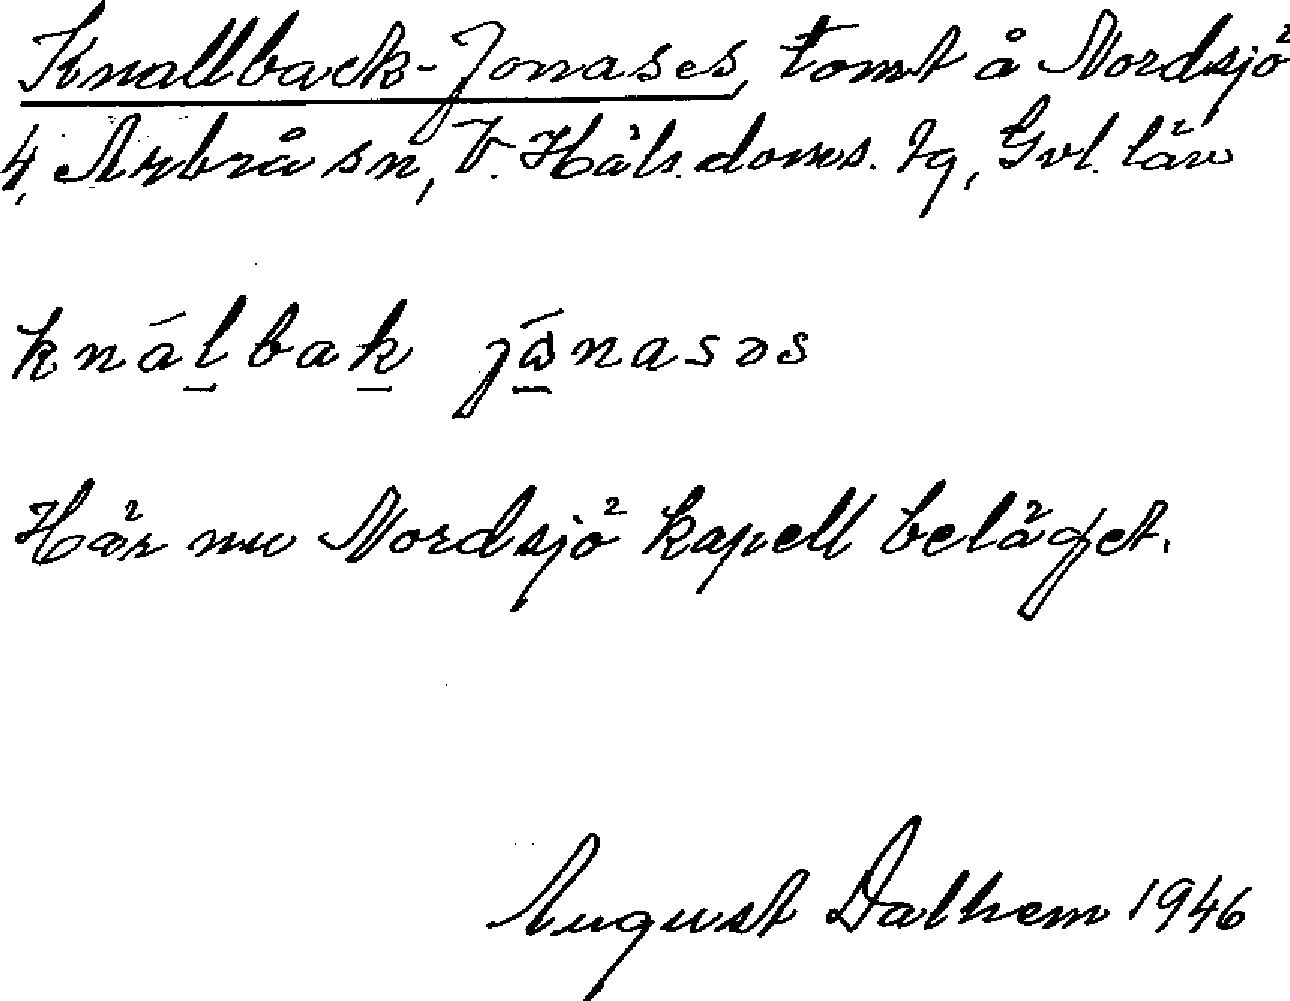 Knallback-Jonases, tomt å Nordsjö
4, Arbrå sn, V. Häls. doms. tg, Gvl. län
knálbak jånasəs
Här nu Nordsjö kapell beläget.
August Dalhem 1946